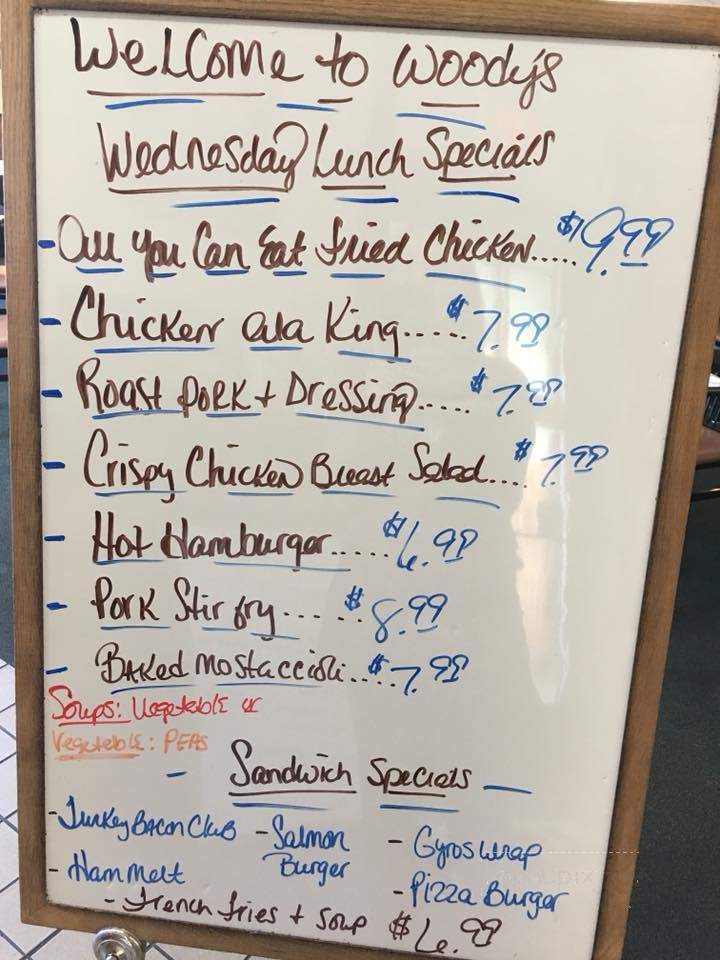 Welcome to Woody's
Wednesday Lunch Specials
- All You Can Eat Fried Chicken..... $9.99
- Chicken ala King..... $7.99
- Roast Pork + Dressing.... $7.99
- Crispy Chicken Breast Salad.... $7.99
- Hot Hamburger..... $6.99
- Pork Stir fry.... $8.99
- Baked Mostaccioli.... $7.99
Soups: Vegetable or
Vegetable: Peas
- Sandwich Specials -
- Turkey Bacon Club - Salmon Burger - Gyros Wrap
- Ham Melt - Pizza Burger
- French Fries + Soup $6.99